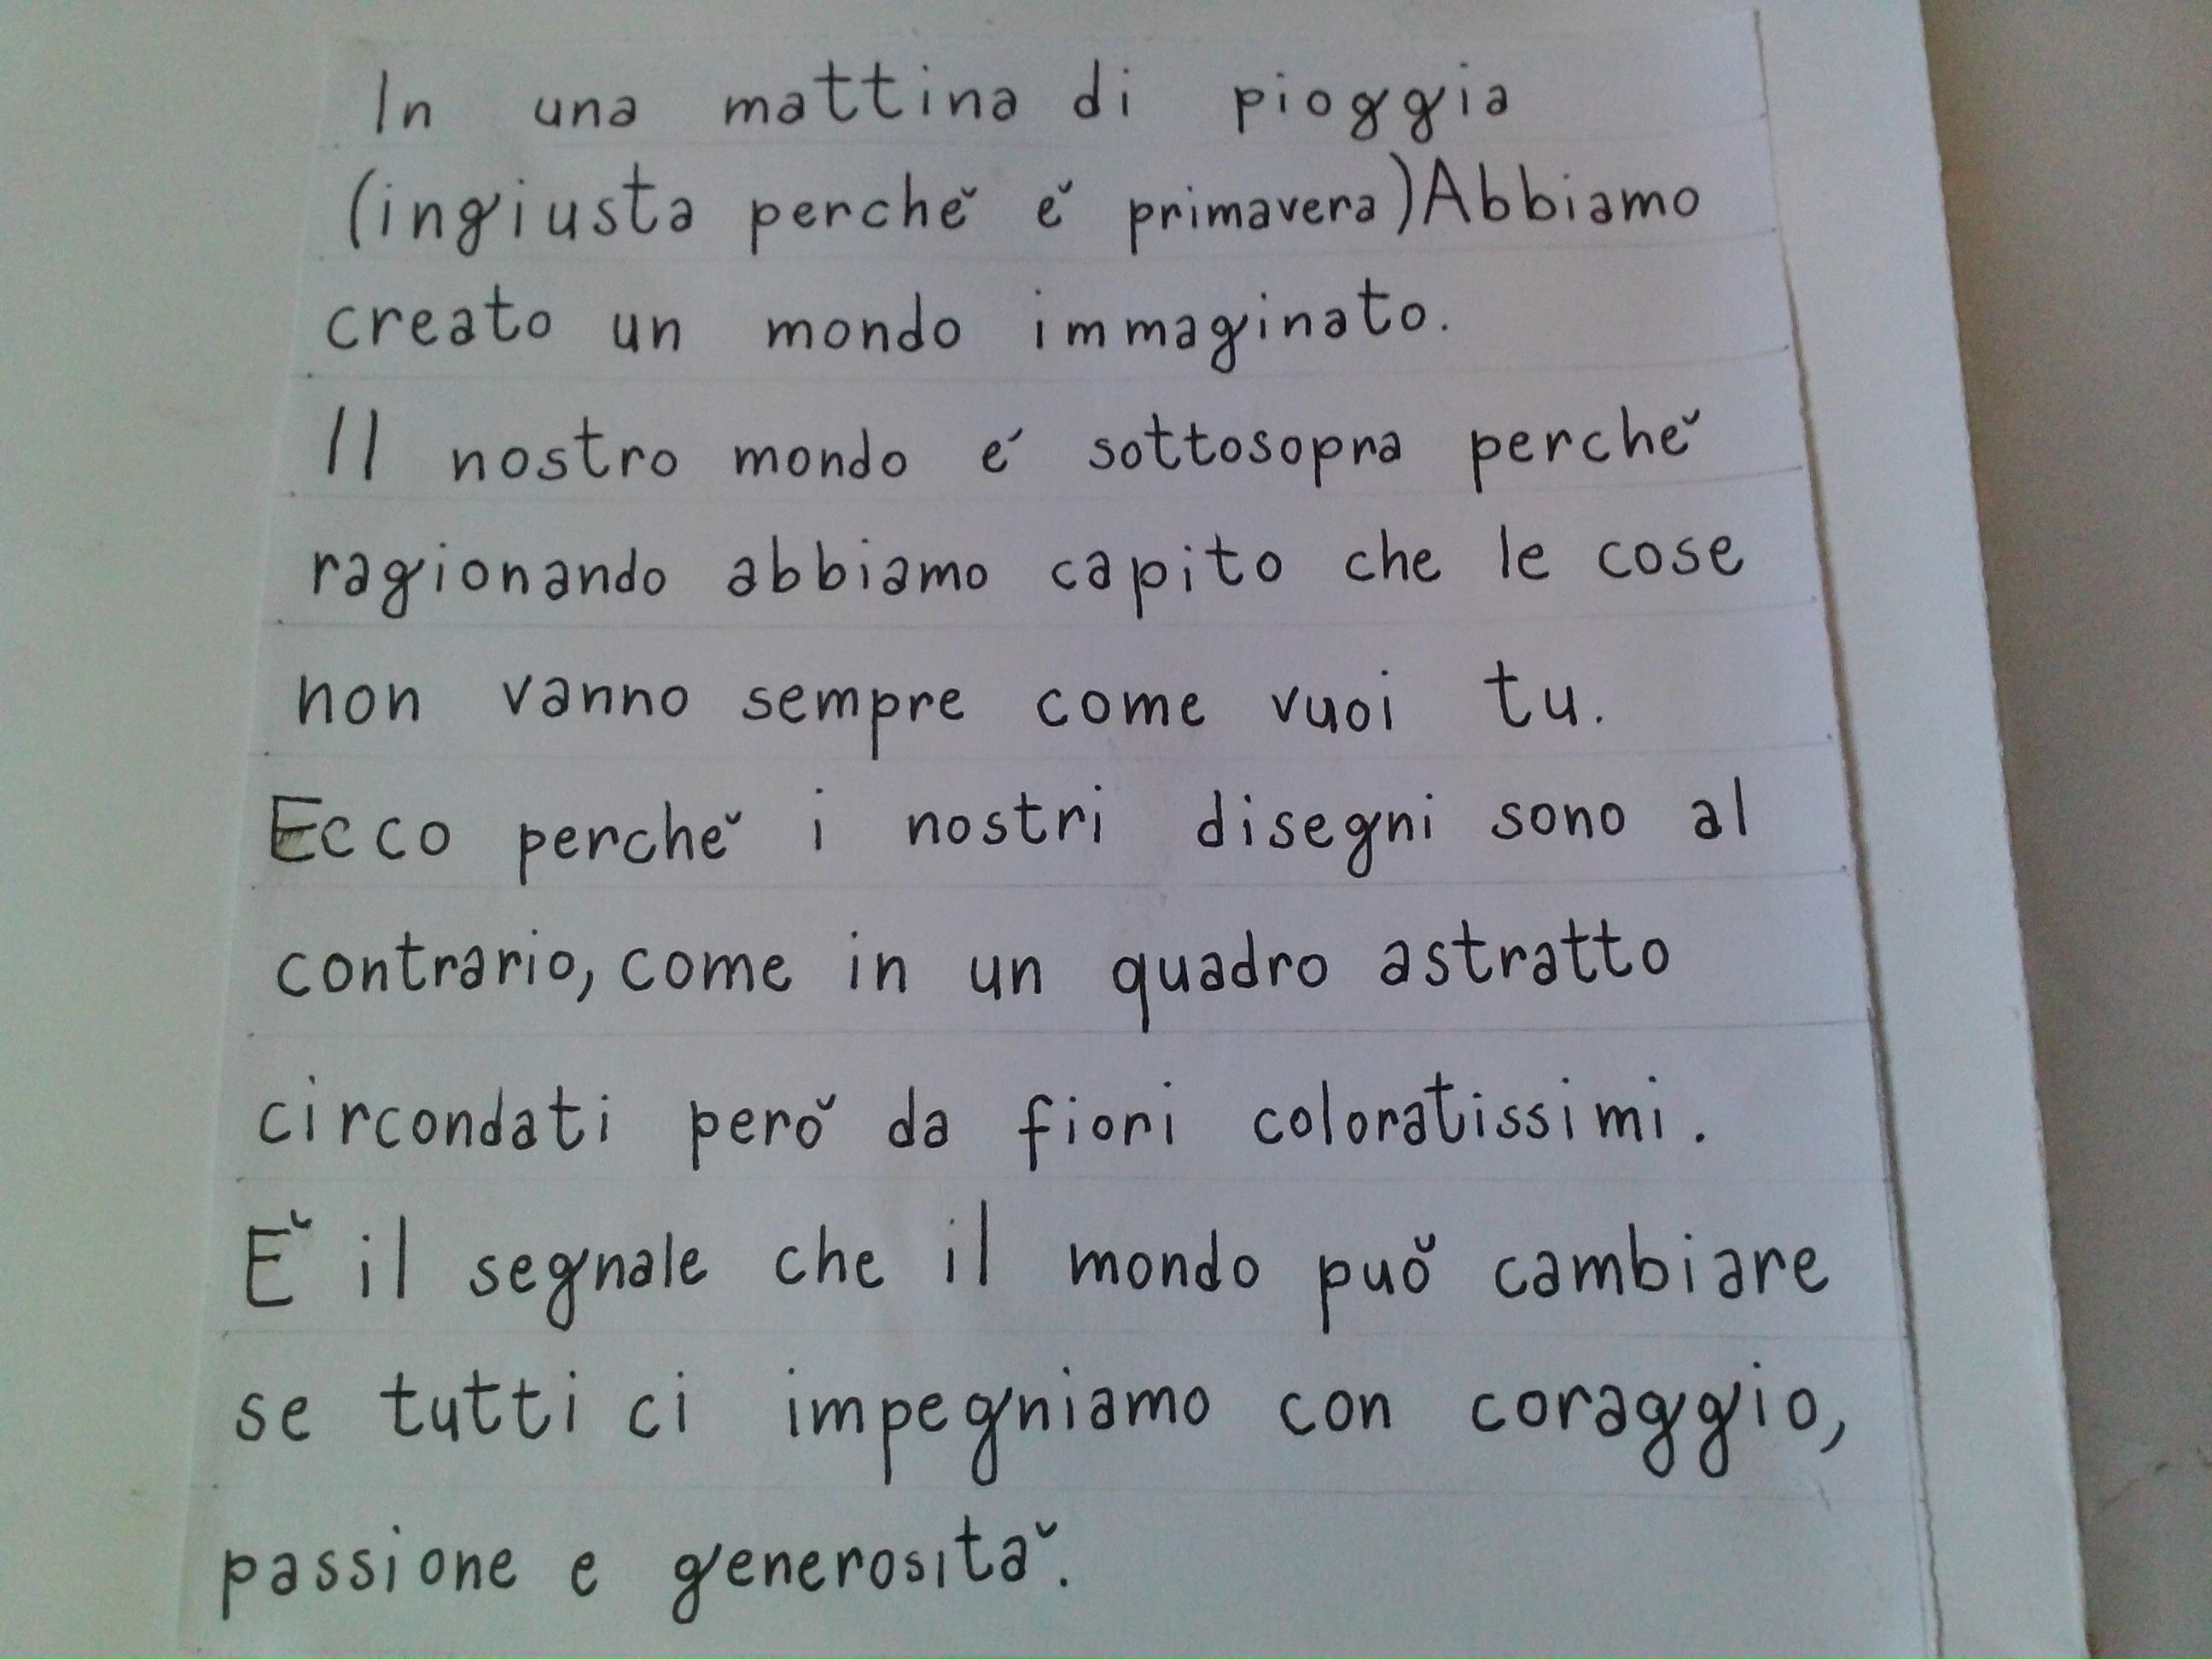 In una mattina di pioggia
(ingiusta perchĕ ĕ primavera) Abbiamo
creato un mondo immaginato.
Il nostro mondo é sottosopra perchĕ
ragionando abbiamo capito che le cose
non vanno sempre come vuoi tu.
Ecco perchĕ i nostri disegni sono al
contrario, come in un quadro astratto
circondati perŏ da fiori coloratissimi.
Ĕ il segnale che il mondo puŏ cambiare
se tutti ci impegniamo con coraggio,
passione e generosită.